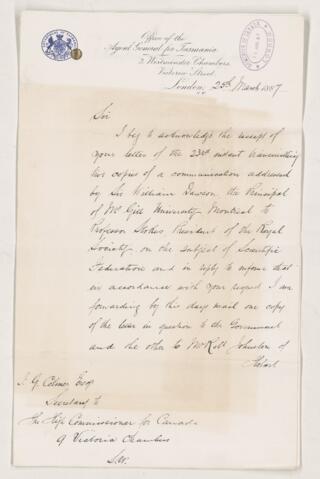 Office of the
Agent General for Tasmania
2 Westminster Chambers
Victoria Street
London, 25th March 1887
Sir
I beg to acknowledge the receipt of
your letter of the 23rd instant transmitting
two copies of a communication addressed
by Sir William Dawson the Principal
of McGill University Montreal to
Professor Stokes President of the Royal
Society on the subject of Scientific
Federation and in reply to inform that
in accordance with your request I am
forwarding by this days mail one copy
of the letter in question to the Government
and the other to Mr Robt Johnston of
Hobart
J. G. Colmer Esqr
Secretary to
The High Commissioner for Canada
9 Victoria Chambers
S.W.